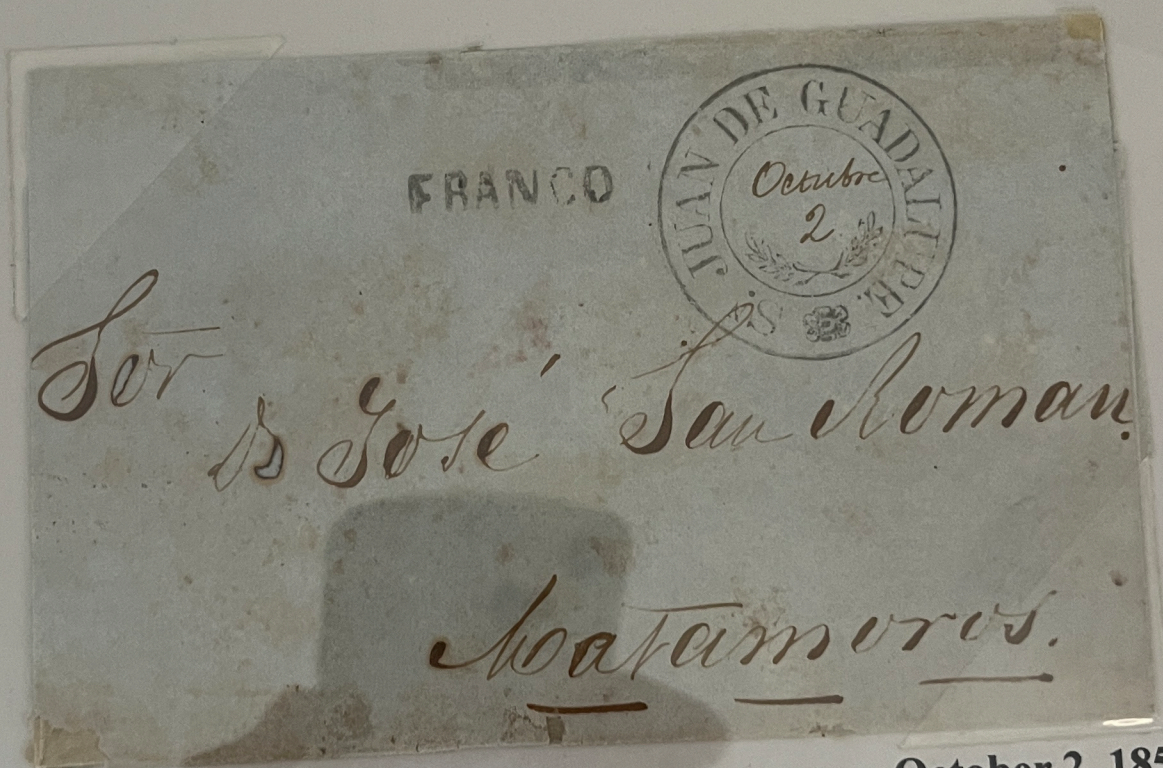 FRANCO
S. JUAN DE GUADALUPE
Octubre
2
Sor
D José San Roman.
Matamoros.
October 2, 185